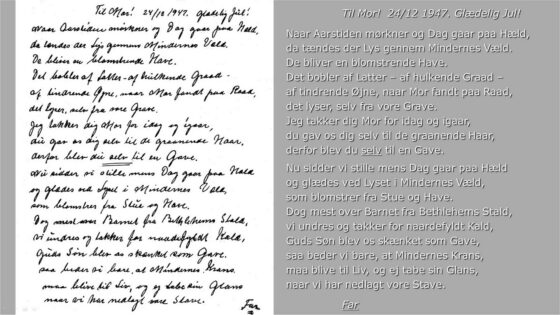 Til Mor! 24/12 1947. Glædelig Jul!
Naar Aarstiden mørkner og Dag gaar paa Hæld,
da tændes der Lys gennem Mindernes Væld.
De bliver en blomstrende Have.
Det bobler af Latter - af hulkende Graad -
af tindrende Øjne, naar Mor fandt paa Raad,
det lyser, selv fra vore Grave.
Jeg takker dig Mor for idag og igaar,
du gav os dig selv til de graanende Haar,
derfor blev du selv til en Gave.
Nu sidder vi stille mens Dag gaar paa Hæld
og glædes ved Lyset i Mindernes Væld,
som blomstrer fra Stue og Have.
Dog mest over Barnet fra Bethlehems Stald,
vi undres og takker for naadefyldt Kald,
Guds Søn blev os skænket som Gave.
saa beder vi bare, at Mindernes Krans,
maa blive til Liv, og ej tabe sin Glans
naar vi har nedlagt vore Stave.
Far
Til Mor!  24/12 1947. Glædelig Jul!
Naar Aarstiden mørkner og Dag gaar paa Hæld,
da tændes der Lys gennem Mindernes Væld.
De bliver en blomstrende Have.
Det bobler af Latter – af hulkende Graad –
af tindrende Øjne, naar Mor fandt paa Raad,
det lyser, selv fra vore Grave.
Jeg takker dig Mor for idag og igaar,
du gav os dig selv til de graanende Haar,
derfor blev du selv til en Gave.
Nu sidder vi stille mens Dag gaar paa Hæld
og glædes ved Lyset i Mindernes Væld,
som blomstrer fra Stue og Have.
Dog mest over Barnet fra Bethlehems Stald,
vi undres og takker for naardefyldt Kald,
Guds Søn blev os skænket som Gave,
saa beder vi bare, at Mindernes Krans,
maa blive til Liv, og ej tabe sin Glans,
naar vi har nedlagt vore Stave.
Far